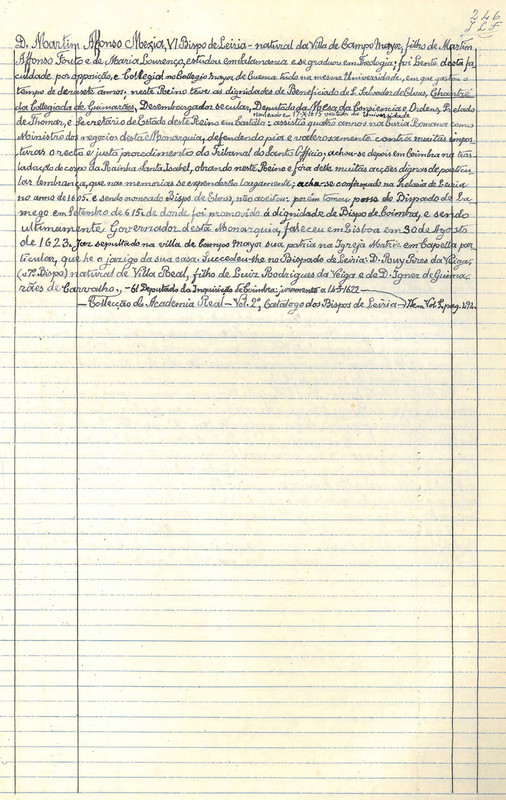 246
D. Martim Affonso Mexia, VI Bispo de Leiria - natural da Villa de Campo Mayor, filho de Martim
Affonso Fouto e de Maria Lourenço, estudou em Salamanca e se graduou em Teologia; foi Lente desta fa
culdade por opposição, e Collegial no Collegio mayor de Cuenca tudo na mesma Universidade, em que gastou o
tempo de dezasete annos; neste Reino teve as dignidades de Beneficiado de S. Salvador de Elvas, Chantre
da Collegiada de Guimarães, Desembargador secular, Deputado da Mesa da Consciencia e Ordens, Prelado
nomeado em 17-X-1615 da Universidade
de Thomar, e Secretario de Estado deste Reino em Castella: assistio quatro annos na Curia Romana como
Ministro dos negocios desta Monarquia, defendendo pia e valerosamente contra muitas impos
turas o recto e justo procedimento do Tribunal do Santo Officio; achou-se depois em Coimbra na tras
ladação do corpo da Rainha Santa Isabel, obrando neste Reino e fóra delle muitas acções dignas de particu
lar lembrança, que nas memorias se expenderão largamente; acha-se confirmado na Prelasia de Leiria
no anno de 1605. e sendo nomeado Bispo de Elvas, não aceitou: porêm tomou posse do Bispado de La
mego em Setembro de 615. de donde foi promovido á dignidade de Bispo de Coimbra, e sendo
ultimamente Governador desta Monarquia, faleceu em Lisboa em 30 de Agosto
de 1623. Jaz sepultado na villa de Campo Mayor sua patria na Igreja Matriz em Capella par
ticular, que he o jazigo da sua casa. Succedeu-lhe no Bispado de Leiria: D. Ruy Pires da Veiga,
(o 7º Bispo) natural de Villa Real, filho de Luiz Rodrigues da Veiga e de D. Ignez de Guima
rães de Carvalho. - Deputado da Inquisição de Coimbra; juramento a 1622 -
- Collecção da Academia Real - Vol. 2º, Catalogo dos Bispos de Leiria - Idem Vol. pag. 192.